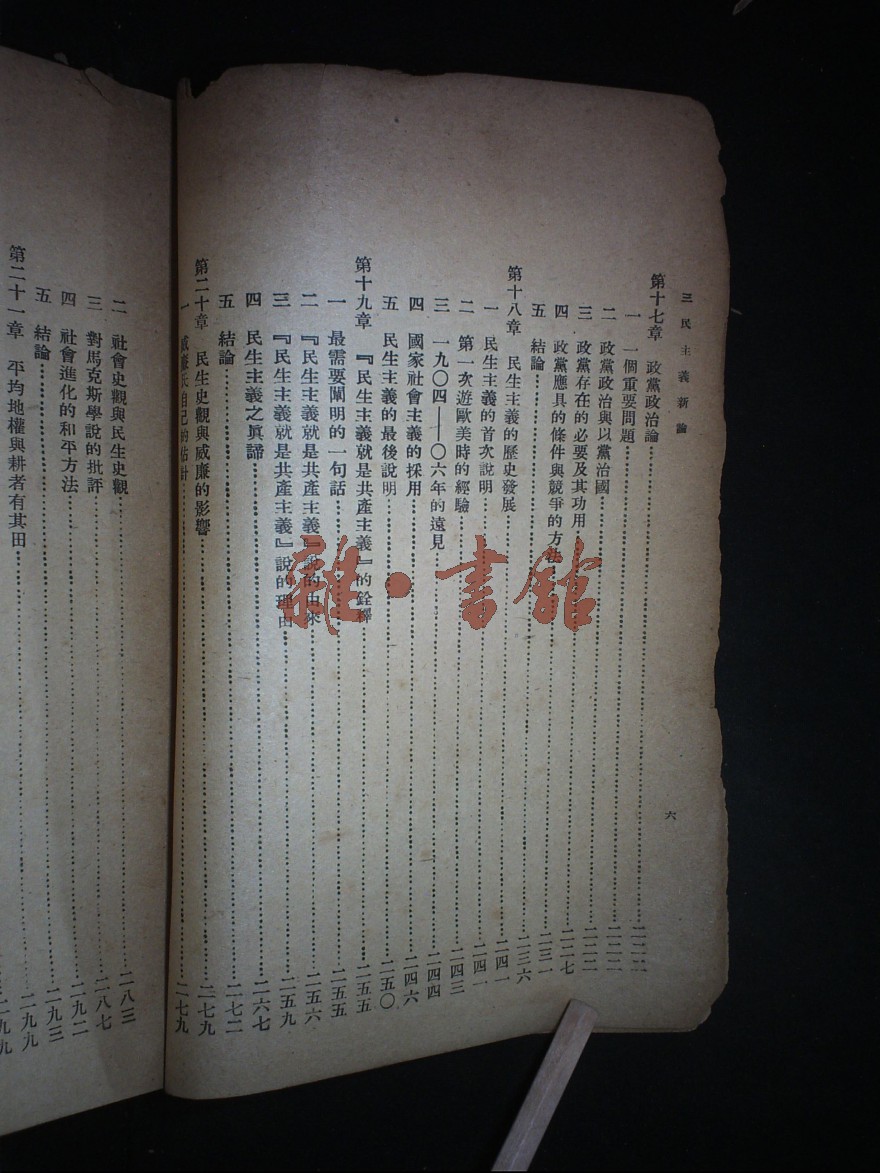 三民主義新論
六
第十七章 政黨政治論……二二二
一 一個重要問題……二二二
二 政黨政治與以黨治國……二二二
三 政黨存在的必要及其功用……二二二
四 政黨應具的條件與競爭的方法……二二七
五 結論……二三一
第十八章 民生主義的歷史發展……二三六
一 民生主義的首次說明……二四一
二 第一次遊歐美時的經驗……二四三
三 一九〇四——〇六年的遠見……二四四
四 國家社會主義的採用……二四六
五 民生主義的最後說明……二五〇
第十九章 『民生主義就是共產主義』的詮釋……二五五
一 最需要闡明的一句話……二五五
二 『民生主義就是共產主義』說的由來……二五六
三 『民生主義就是共產主義』說的理由……二五九
四 民生主義之眞諦……二六七
五 結論……二七二
第二十章 民生史觀與威廉的影響……二七九
一 威廉氏自己的估計……二七九
二 社會史觀與民生史觀……二八三
三 對馬克斯學說的批評……二八七
四 社會進化的和平方法……二九二
五 結論……二九三
第二十一章 平均地權與耕者有其田……二九九
二九九
雜·書館